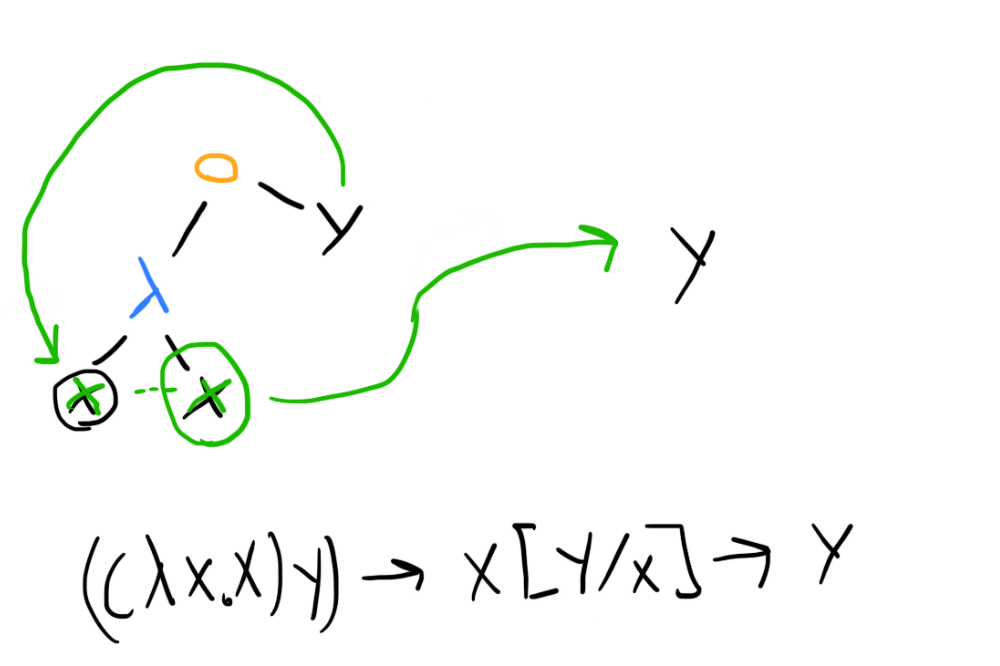 O
Y
Y
λ
X X
((λx.X)Y) → X[Y/x] → Y